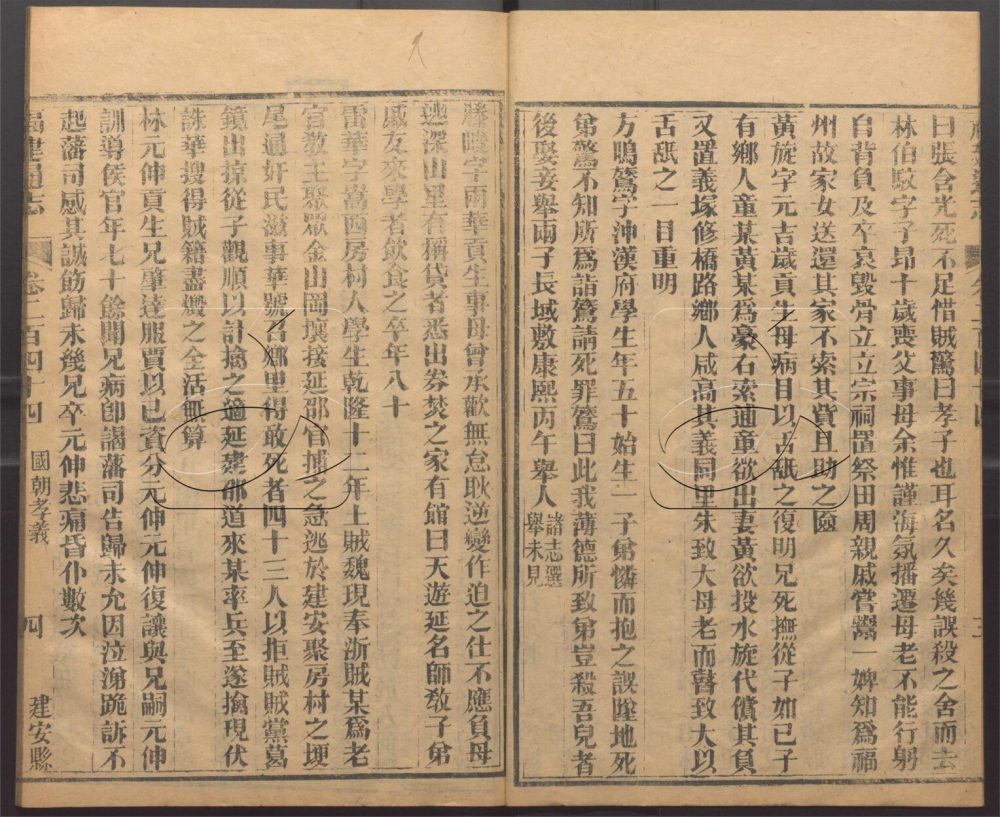 曰張含光死不足惜賊驚曰孝子也耳名久矣幾誤殺之舍而去
林伯馭字子昂十歲喪父事母余惟謹海氛播遷母老不能行躬
自背負及卒哀毀骨立立宗祠置祭田周親戚嘗鬻一婢知爲福
州故家女送還其家不索其貲且助之奩
黃旋字元吉歲貢生母病目以舌舐之復明兄死撫從子如已子
有鄉人童某黃某爲豪右索逋童欲出妻黃欲投水旋代償其負
又置義塚修橋路鄉人咸高其義同里朱致大母老而瞽致大以
舌舐之一目重明
方鳴鶯字沖漢府學生年五十始生一子弟憐而抱之誤墜地死
弟驚不知所爲詣鶯請死罪鶯曰此我薄德所致弟豈殺吾兒者
後娶妾舉兩子長域敷康熙丙午舉人諸志選舉未見
滕暐字雨華貢生事母曾承歡無怠耿逆變作迫之仕不應負母
遯深山里有稱貸者悉出券焚之家有館曰天遊延名師教子弟
戚友來學者飲食之卒年八十
雷華字嵩四房村人學生乾隆十二年上賊魏現奉浙賊某爲老
官敎主聚眾金山岡壤接延邵官捕之急逃於建安聚房村之埂
尾通奸民滋事華號召鄉里得敢死者四十三人以拒賊賊黨葛
鏡出掠從子觀順以計擒之適延建邵道來某率兵至遂擒現伏
誅華搜得賊籍盡燬之全活無算
林元伸貢生兄肇達服賈以已貲分元伸元伸復讓與兄嗣元伸
訓導侯官年七十餘聞兄病卽謁藩司告歸未允因泣涕跪訴不
起藩司感其誠飭歸未幾兄卒元伸悲痛昏仆數次
福建通志 卷二百四十四 國朝孝義 四 建安縣